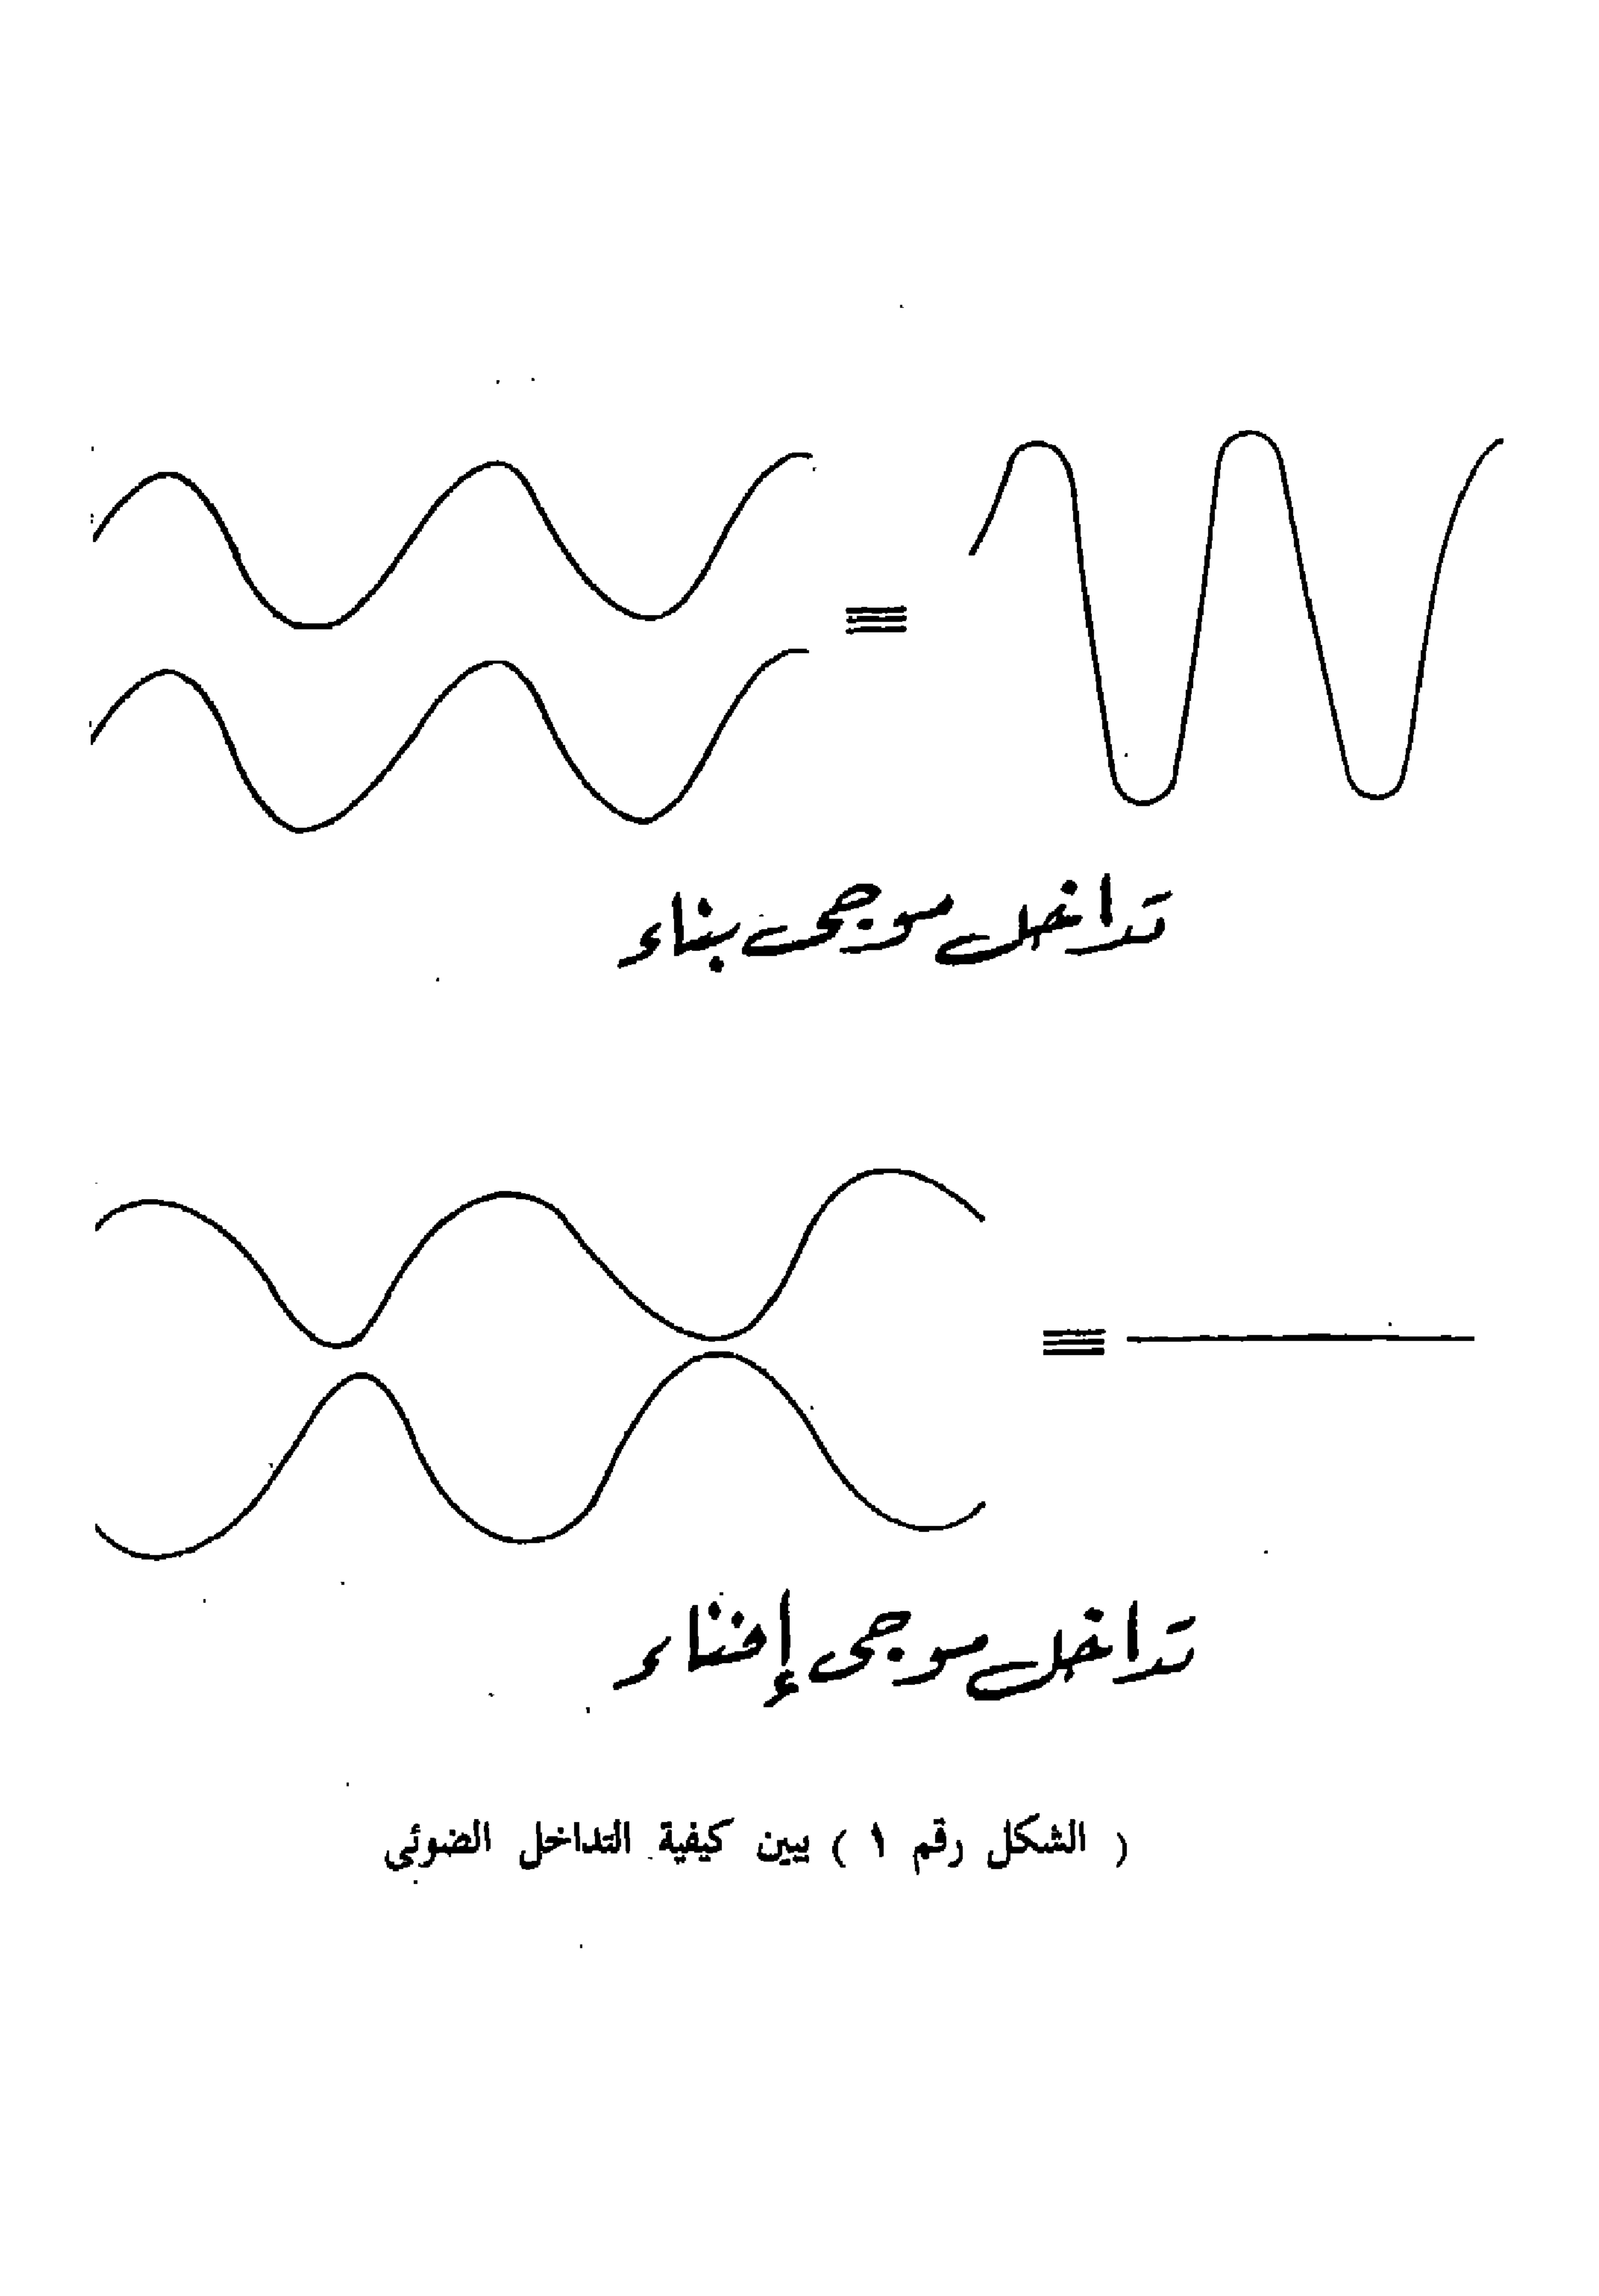 تداخل موجى بناء
تداخل موجى إفناء
( الشكل رقم ١ ) يبين كيفية التداخل الضوئي